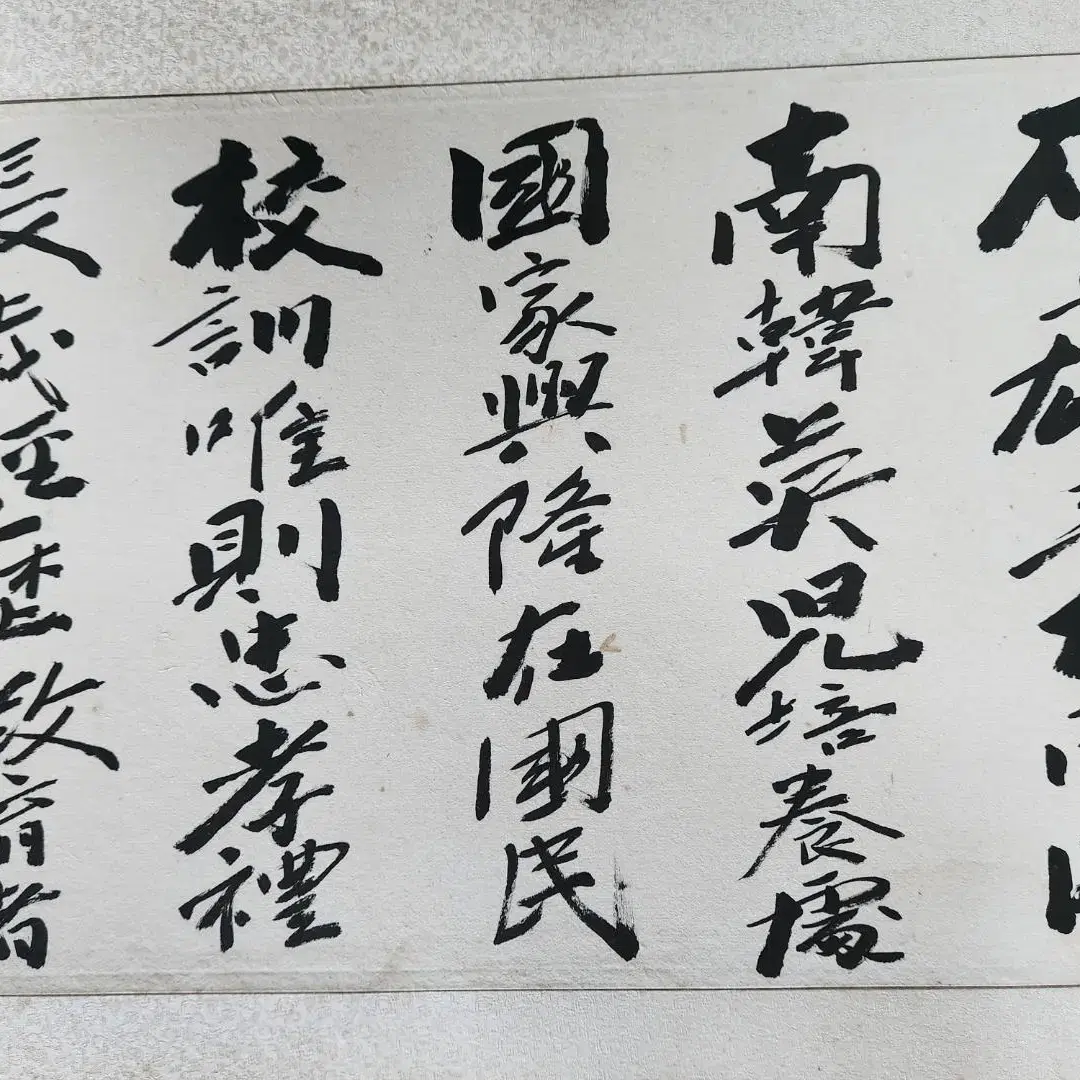 南韓英児培養處
國家興隆在國民
校訓唯則忠孝禮
長歲至歷教育者